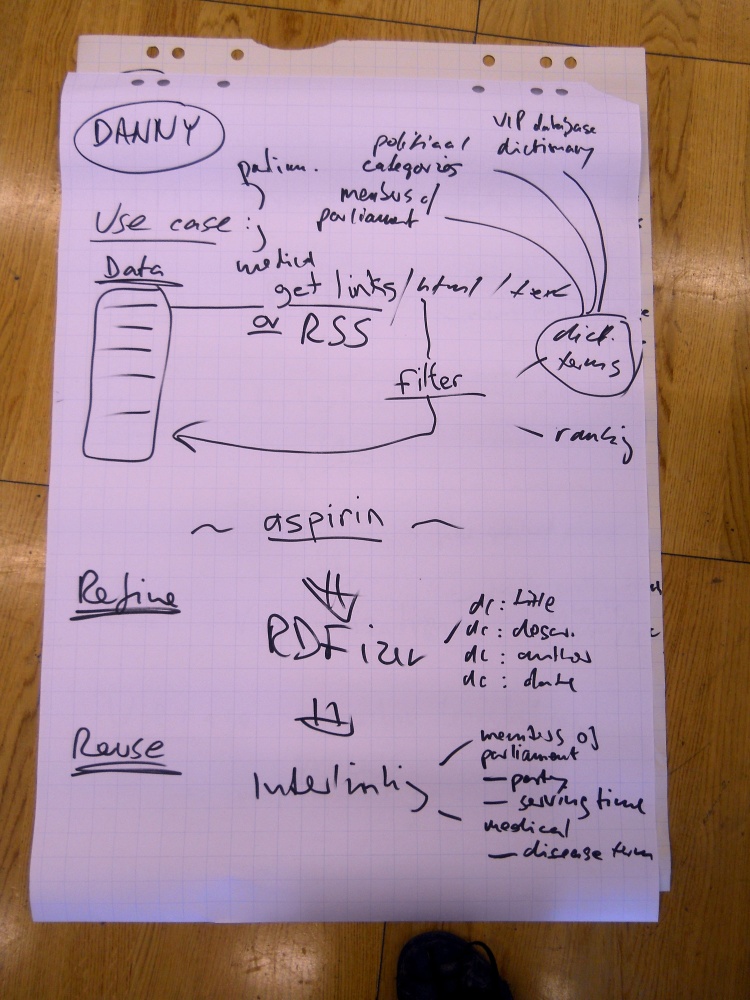 DANNY
VIP database
dictionary
political
categories
members of
parliament
Use case :
medical
Data
get links / html / text
or RSS
dict.
terms
filter
ranking
~ aspirin ~
Refine
RDFizer
dc : title
dc : descr.
dc : author
dc : date
Reuse
Interlinking
members of
parliament
— party
— serving time
medical
— disease term